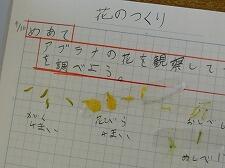 花のつくり
9/10
めあて
アブラナの花を観察して
を調べよう。
がく
4まい
花びら
4まい
おしべ
めしべ